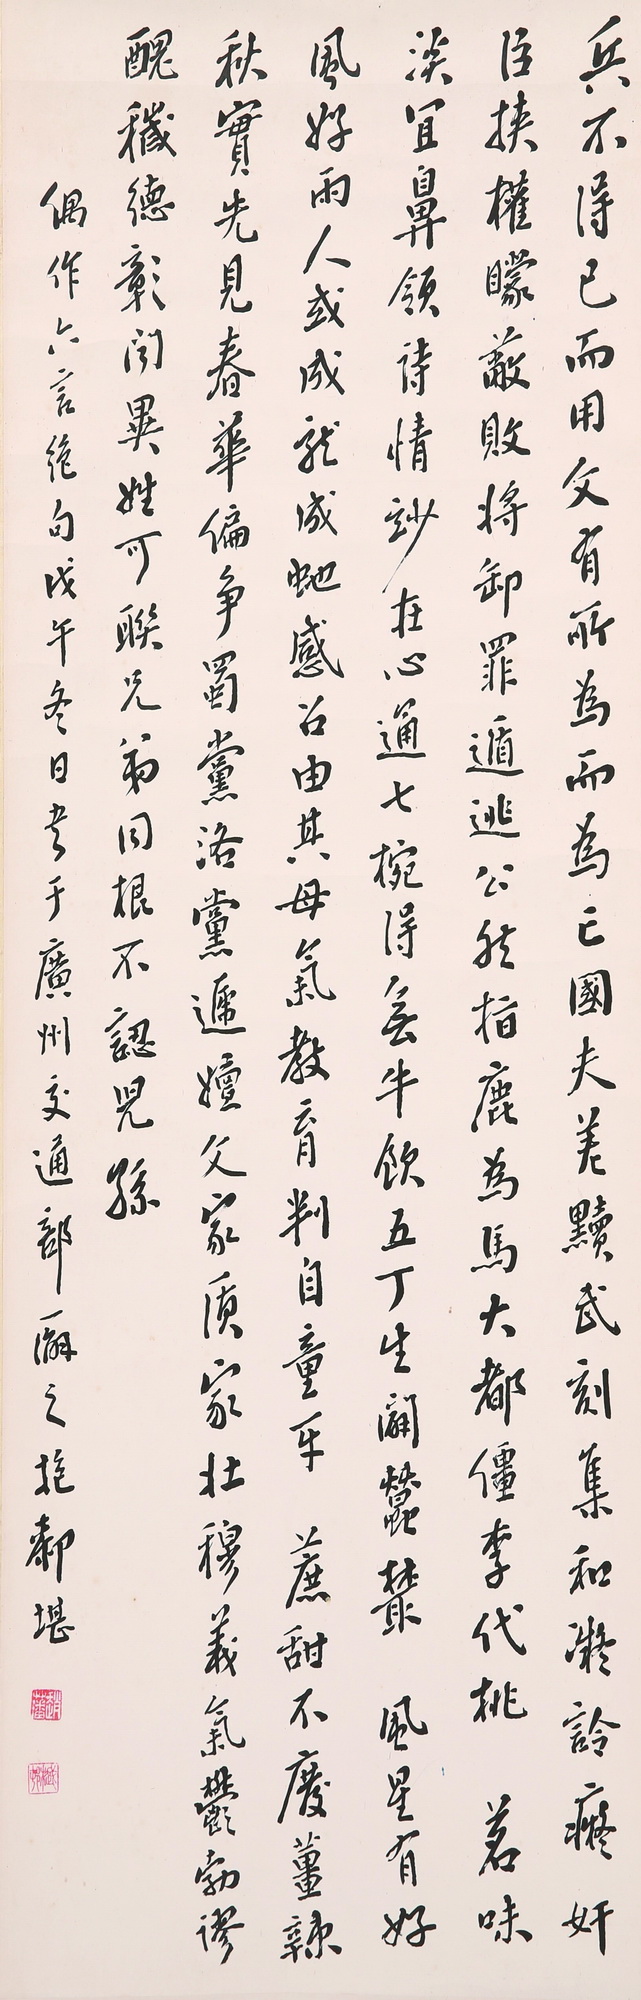 兵不得已而用文有所為而為亡國夫差黷武刻集和凝詅癡奸
臣挾權矇蔽敗將卸罪遁逃公然指鹿為馬大都僵李代桃 茗味
淡宜鼻領詩情妙在心通七椀得無牛飲五丁生闢蠶叢 風星有好
風好雨人或成龍成虵感召由其母氣教育判自童牙 蔗甜不廢薑辣
秋實先見春華偏爭蜀黨洛黨遞嬗父家質家壯穆義氣鬱勃謬
醜穢德彰聞異姓可聯兄弟同根不認兒孫
偶作六言絕句戊午冬日書于廣州交通部廨之抱鄰堪